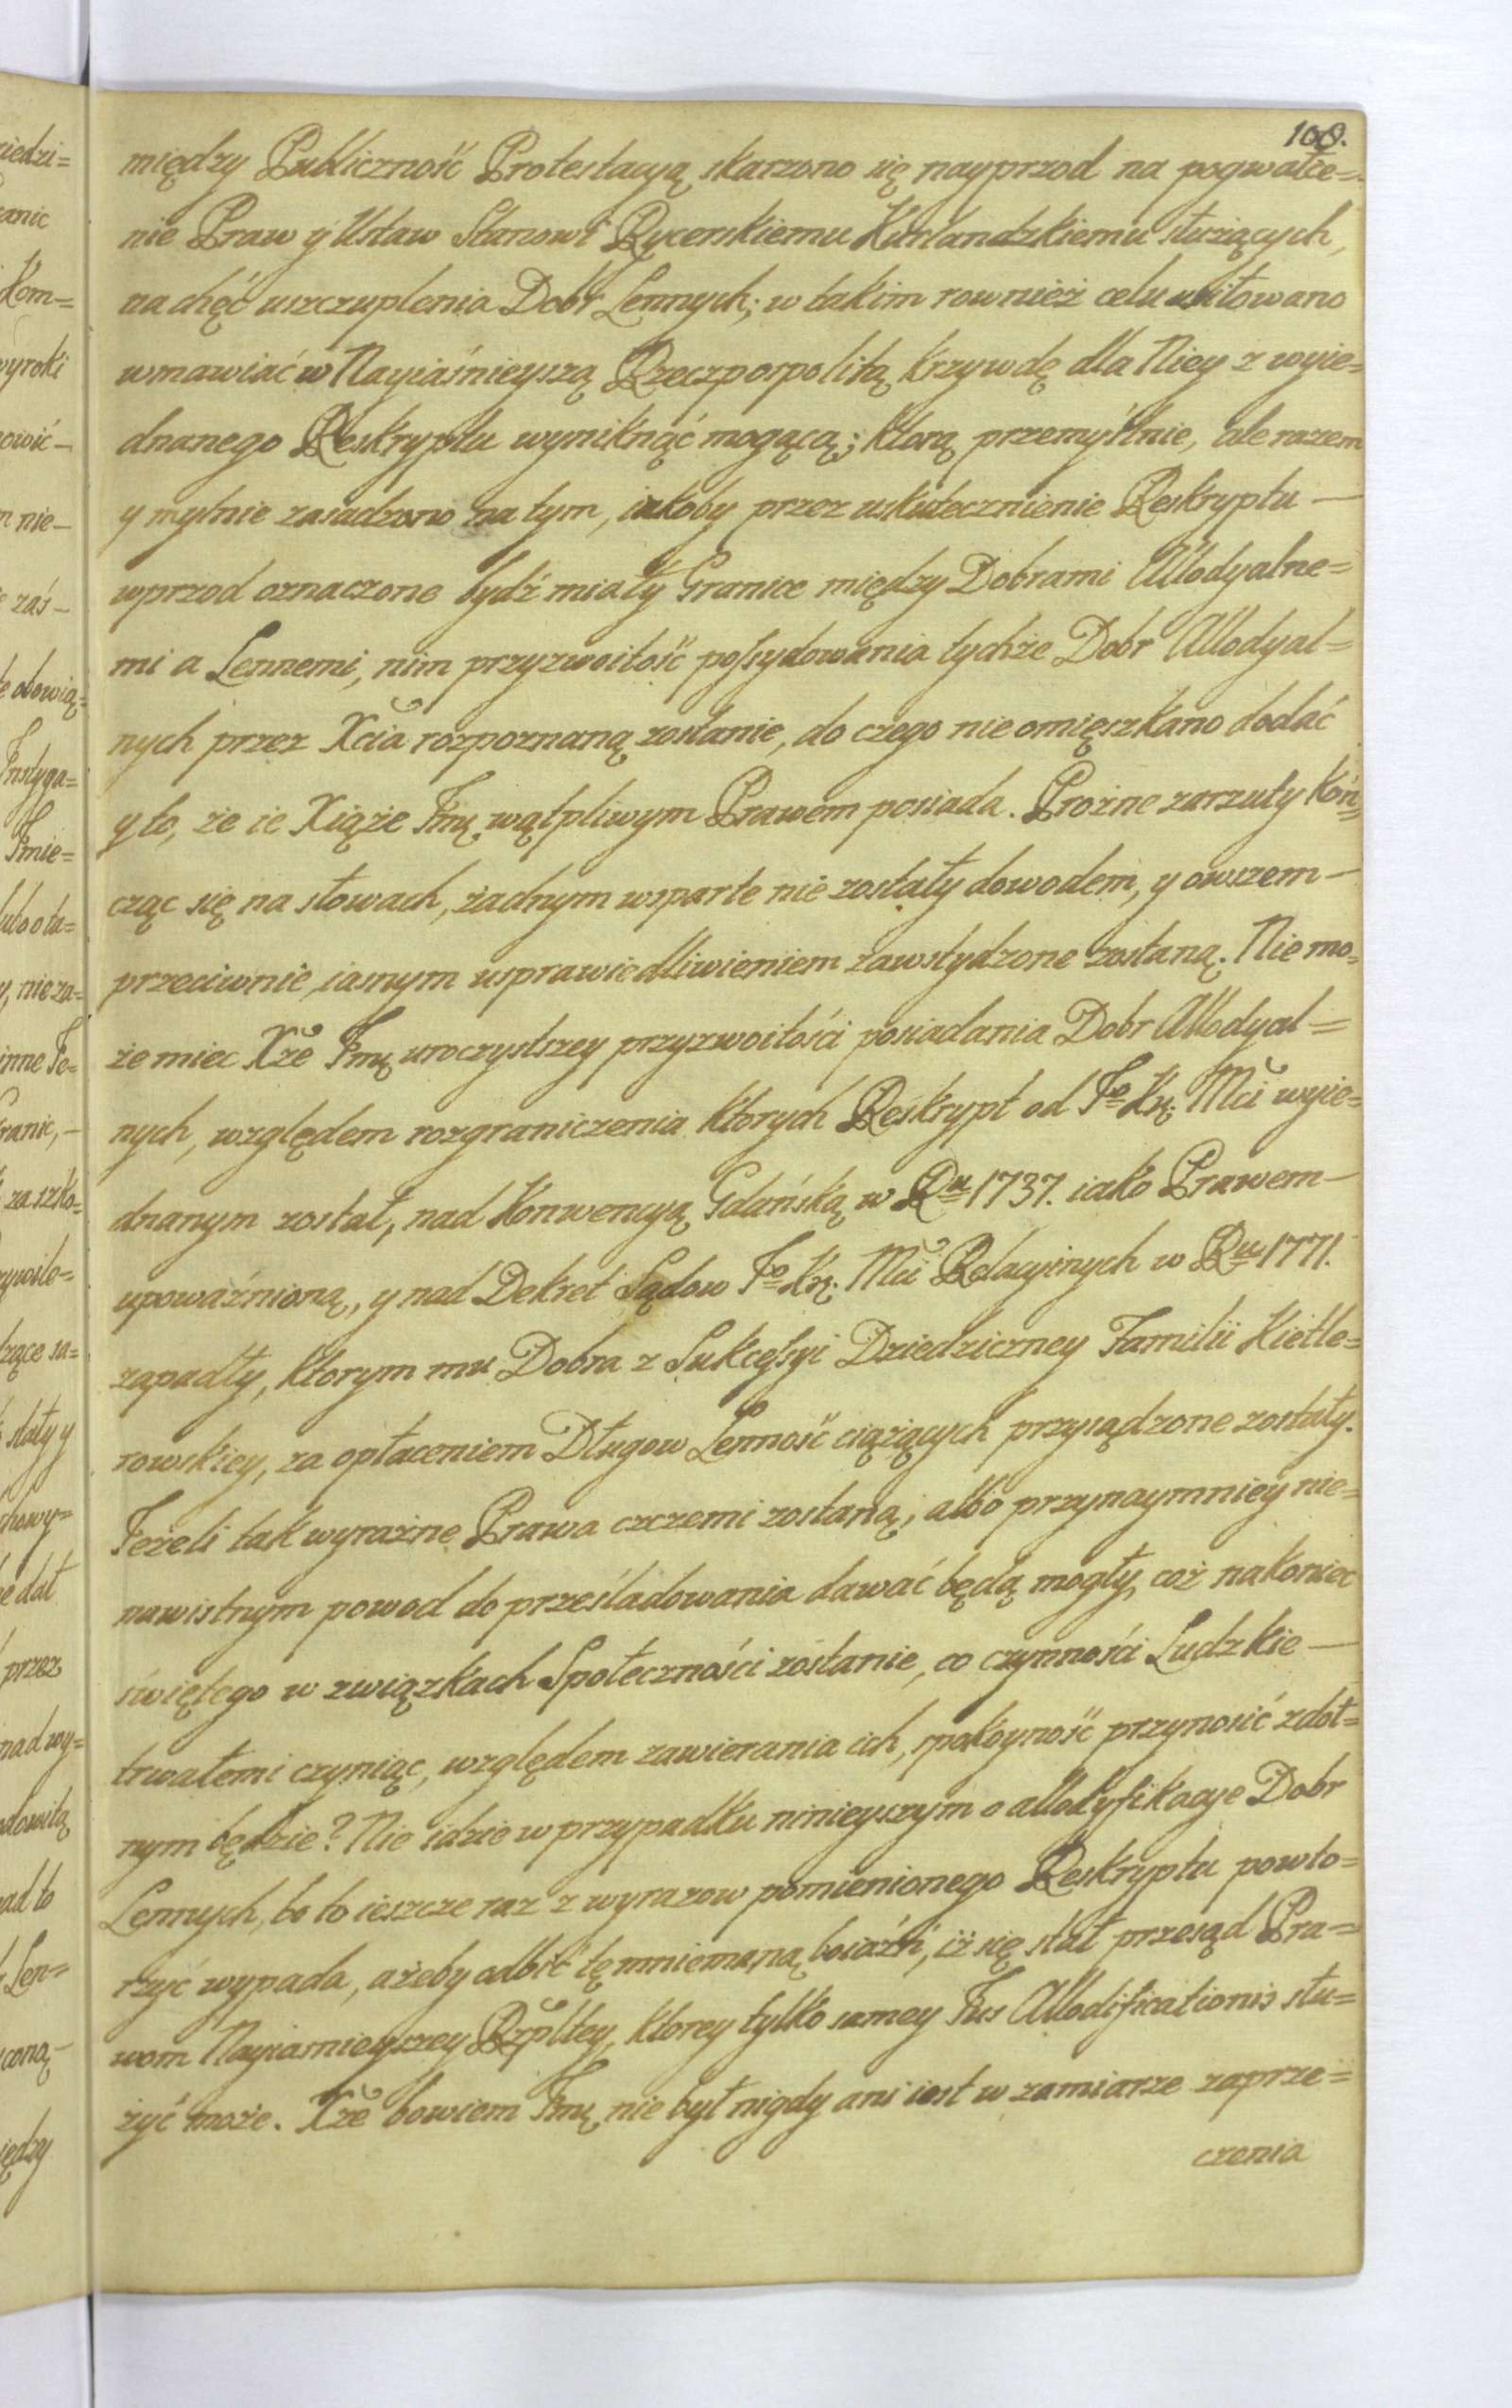 108.
między Publiczność Protestacyą skarzono się nayprzod na pogwałce=
nie Praw y Ustaw Stanowi Rycerskiemu Kurlandzkiemu służących,
na chęć uszczuplenia Dobr Lennych; w takim rownież celu usiłowano
wmawiać w Nayiaśnieyszą Rzeczpospolitą krzywdę dla Niey z wyie=
dnanego Reskryptu wyniknąć mogącą; ktorą przemyślnie, ale razem
y mylnie zasadzono na tym, iakoby przez uskutecznienie Reskryptu —
wprzod oznaczone bydź miały Granice między Dobrami Allodyalne=
mi a Lennemi, nim przyzwoitość possydowania tychże Dobr Allodyal=
nych przez Xcia rozpoznaną zostanie, do czego nie omięszkano dodać
y to, że ie Xiąże Jmę wątpliwym Prawem posiada. Prożne zarzuty koń=
cząc się na słowach, żadnym wsparte nie zostały dowodem, y owszem —
przeciwnie iasnym usprawiedliwieniem zawstydzone zostaną. Nie mo=
że miec Xże Jmę uroczystszey przyzwoitości posiadania Dobr Allodyal=
nych, względem rozgraniczenia ktorych Reskrypt od Jo Kr: Mci wyie=
dnanym został, nad Konwencyą Gdańską w Ru 1737. iako Prawem —
upoważnioną, y nad Dekret Sądow Jo Kr: Mci Relacyinych w Ru 1771.
zapadły, ktorym mu Dobra z Sukcessyi Dziedziczney Familii Kietle=
rowskiey, za opłaceniem Długow Lenność ciążących przysądzone zostały.
Jeżeli tak wyrażne Prawa czczemi zostaną, albo przynaymniey nie=
nawistnym powod do prześladowania dawać będą mogły, coż nakoniec
świętego w związkach Społeczności zostanie, co czynności Ludzkie —
trwałemi czyniąc, względem zawierania ich, spokoyność przynosić zdoł=
nym będzie? Nie idzie w przypadku ninieyszym o allodyfikacye Dobr
Lennych, bo to ieszcze raz z wyrazow pomienionego Reskryptu powto=
rzyć wypada, ażeby odbić tę mniemaną boiaźń, iż się stał przesąd Pra=
wom Nayiasnieyszey Rzpltey, ktorey tylko samey Jus Allodificationis słu=
żyć może. Xże bowiem Jmę nie był nigdy ani iest w zamiarze zaprze=
czenia